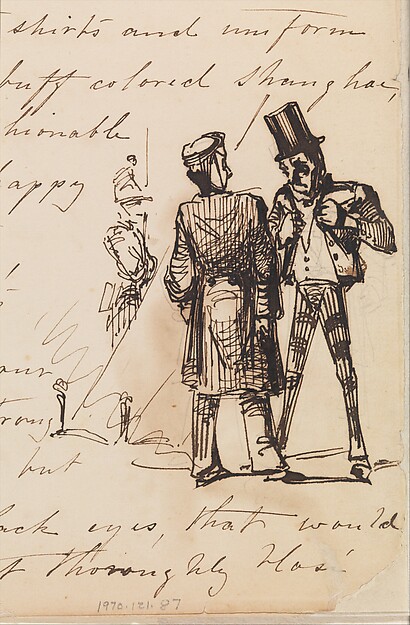 shirts and uniform
buff colored shanghae,
hionable
happy
our
trong
but
ack eyes, that would
t thoroughly blas'
1970.121.87